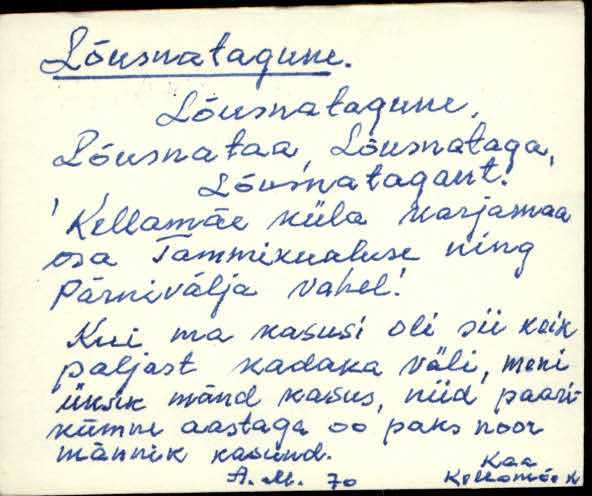 Lõusnatagune.
Lõusnatagune,
Lõusnataa, Lõusnataga,
Lõusnatagant.
'Kellamäe küla karjamaa
osa Tammikualuse ning
Pärnivälja vahel.'
Kui ma kasusi oli sii keik
paljast kadaka väli, meni
üksik mänd kasus, niid paari-
kümne aastaga oo paks noor
männik kasund.
A. M. 70
Kaa
Kellamäe k